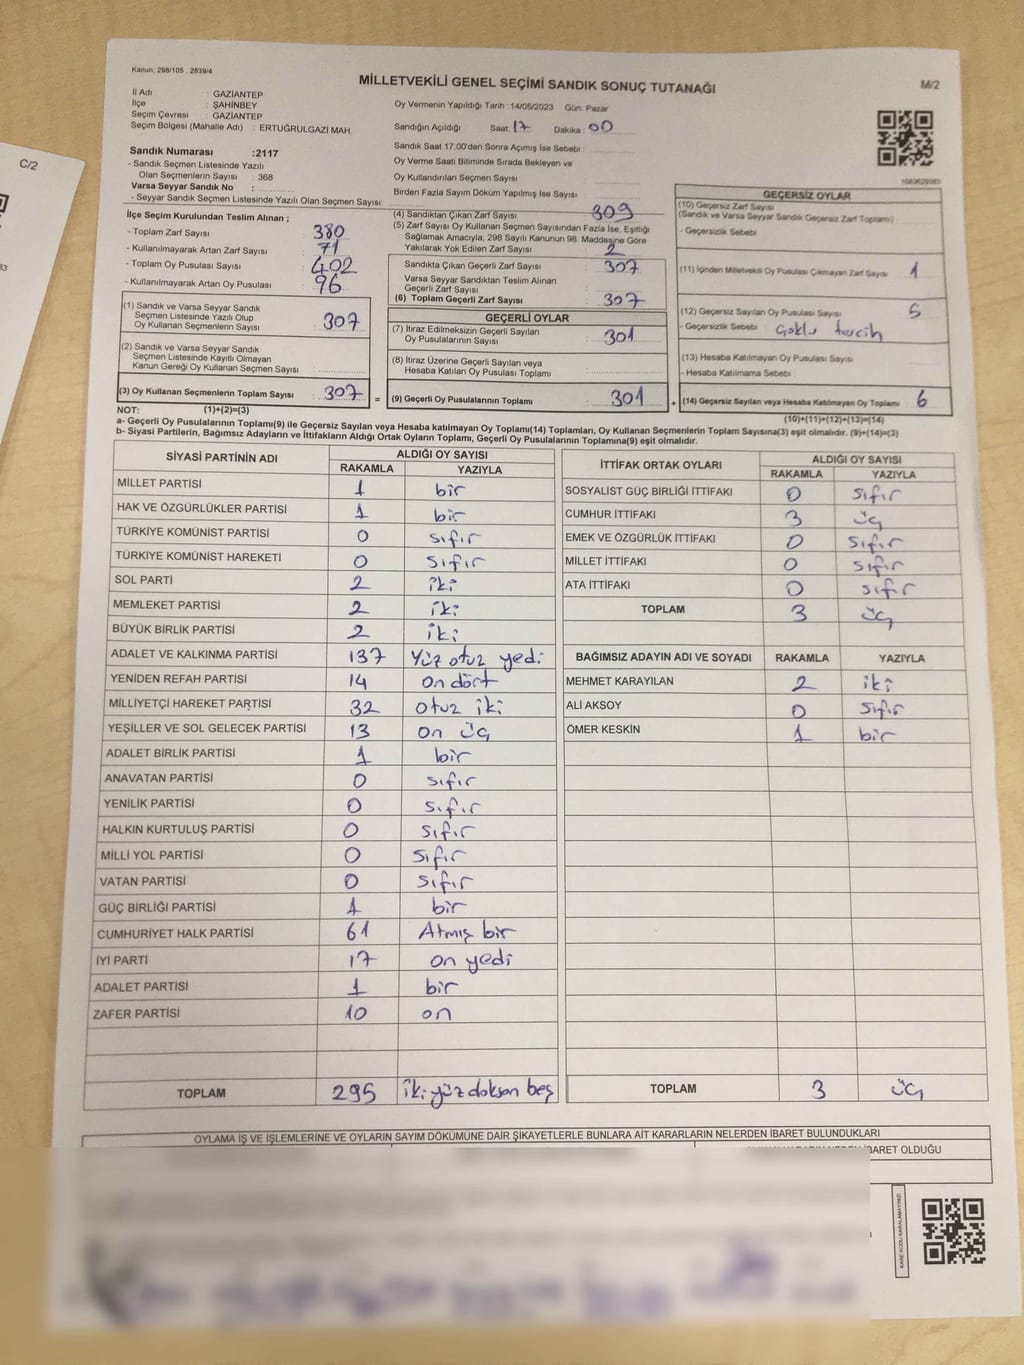 C/2
Kanun; 298/105 , 2839/4
MİLLETVEKİLİ GENEL SEÇİMİ SANDIK SONUÇ TUTANAĞI
M/2
İl Adı : GAZİANTEP
İlçe : ŞAHİNBEY
Seçim Çevresi : GAZİANTEP
Seçim Bölgesi (Mahalle Adı) : ERTUĞRULGAZİ MAH.
Oy Vermenin Yapıldığı Tarih :14/05/2023 Gün: Pazar
Sandığın Açıldığı Saat: 17 Dakika: 00
Sandık Saat 17:00'den Sonra Açımış İse Sebebi :
Oy Verme Saati Bitiminde Sırada Bekleyen ve
Oy Kullandırılan Seçmen Sayısı :
Birden Fazla Sayım Döküm Yapılmış İse Sayısı :
Sandık Numarası :2117
- Sandık Seçmen Listesinde Yazılı
Olan Seçmenlerin Sayısı : 368
Varsa Seyyar Sandık No :
- Seyyar Sandık Seçmen Listesinde Yazılı Olan Seçmen Sayısı :
İlçe Seçim Kurulundan Teslim Alınan ;
- Toplam Zarf Sayısı : 380
- Kullanılmayarak Artan Zarf Sayısı : 71
- Toplam Oy Pusulası Sayısı : 402
- Kullanılmayarak Artan Oy Pusulası : 96
(1) Sandık ve Varsa Seyyar Sandık
Seçmen Listesinde Yazılı Olup
Oy Kullanan Seçmenlerin Sayısı : 307
(2) Sandık ve Varsa Seyyar Sandık
Seçmen Listesinde Kayıtlı Olmayan
Kanun Gereği Oy Kullanan Seçmen Sayısı :
(3) Oy Kullanan Seçmenlerin Toplam Sayısı : 307 =
(4) Sandıktan Çıkan Zarf Sayısı : 309
(5) Zarf Sayısı Oy Kullanan Seçmen Sayısından Fazla İse, Eşitliği
Sağlamak Amacıyla, 298 Sayılı Kanunun 98. Maddesine Göre
Yakılarak Yok Edilen Zarf Sayısı : 2
Sandıkta Çıkan Geçerli Zarf Sayısı : 307
Varsa Seyyar Sandıktan Teslim Alınan
Geçerli Zarf Sayısı :
(6) Toplam Geçerli Zarf Sayısı : 307
GEÇERLİ OYLAR
(7) İtiraz Edilmeksizin Geçerli Sayılan
Oy Pusulalarının Sayısı : 301
(8) İtiraz Üzerine Geçerli Sayılan veya
Hesaba Katılan Oy Pusulası Toplamı :
(9) Geçerli Oy Pusulalarının Toplamı : 301 +
GEÇERSİZ OYLAR
(10) Geçersiz Zarf Sayısı
(Sandık ve Varsa Seyyar Sandık Geçersiz Zarf Toplamı)
- Geçersizlik Sebebi :
(11) İçinden Milletvekili Oy Pusulası Çıkmayan Zarf Sayısı : 1
(12) Geçersiz Sayılan Oy Pusulası Sayısı : 5
- Geçersizlik Sebebi : Çoklu tercih
(13) Hesaba Katılmayan Oy Pusulası Sayısı :
- Hesaba Katılmama Sebebi :
(14) Geçersiz Sayılan veya Hesaba Katılmayan Oy Toplamı : 6
NOT: (1)+(2)=(3) (10)+(11)+(12)+(13)=(14)
a- Geçerli Oy Pusulalarının Toplamı(9) ile Geçersiz Sayılan veya Hesaba katılmayan Oy Toplamı(14) Toplamları, Oy Kullanan Seçmenlerin Toplam Sayısına(3) eşit olmalıdır. (9)+(14)=(3)
b- Siyasi Partilerin, Bağımsız Adayların ve İttifakların Aldığı Ortak Oyların Toplamı, Geçerli Oy Pusulalarının Toplamına(9) eşit olmalıdır.
SİYASİ PARTİNİN ADI ALDIĞI OY SAYISI
RAKAMLA YAZIYLA
MİLLET PARTİSİ 1 bir
HAK VE ÖZGÜRLÜKLER PARTİSİ 1 bir
TÜRKİYE KOMÜNİST PARTİSİ 0 sıfır
TÜRKİYE KOMÜNİST HAREKETİ 0 sıfır
SOL PARTİ 2 iki
MEMLEKET PARTİSİ 2 iki
BÜYÜK BİRLİK PARTİSİ 2 iki
ADALET VE KALKINMA PARTİSİ 137 Yüz otuz yedi
YENİDEN REFAH PARTİSİ 14 on dört
MİLLİYETÇİ HAREKET PARTİSİ 32 otuz iki
YEŞİLLER VE SOL GELECEK PARTİSİ 13 on üç
ADALET BİRLİK PARTİSİ 1 bir
ANAVATAN PARTİSİ 0 sıfır
YENİLİK PARTİSİ 0 sıfır
HALKIN KURTULUŞ PARTİSİ 0 sıfır
MİLLİ YOL PARTİSİ 0 sıfır
VATAN PARTİSİ 0 sıfır
GÜÇ BİRLİĞİ PARTİSİ 1 bir
CUMHURİYET HALK PARTİSİ 61 Atmış bir
İYİ PARTİ 17 on yedi
ADALET PARTİSİ 1 bir
ZAFER PARTİSİ 10 on
TOPLAM 295 iki yüz doksan beş
İTTİFAK ORTAK OYLARI ALDIĞI OY SAYISI
RAKAMLA YAZIYLA
SOSYALİST GÜÇ BİRLİĞİ İTTİFAKI 0 sıfır
CUMHUR İTTİFAKI 3 üç
EMEK VE ÖZGÜRLÜK İTTİFAKI 0 sıfır
MİLLET İTTİFAKI 0 sıfır
ATA İTTİFAKI 0 sıfır
TOPLAM 3 üç
BAĞIMSIZ ADAYIN ADI VE SOYADI RAKAMLA YAZIYLA
MEHMET KARAYILAN 2 iki
ALİ AKSOY 0 sıfır
ÖMER KESKİN 1 bir
TOPLAM 3 üç
OYLAMA İŞ VE İŞLEMLERİNE VE OYLARIN SAYIM DÖKÜMÜNE DAİR ŞİKAYETLERLE BUNLARA AİT KARARLARIN NELERDEN İBARET BULUNDUKLARI
İBARET OLDUĞU
KARE KODU KARALAMAYINIZ!